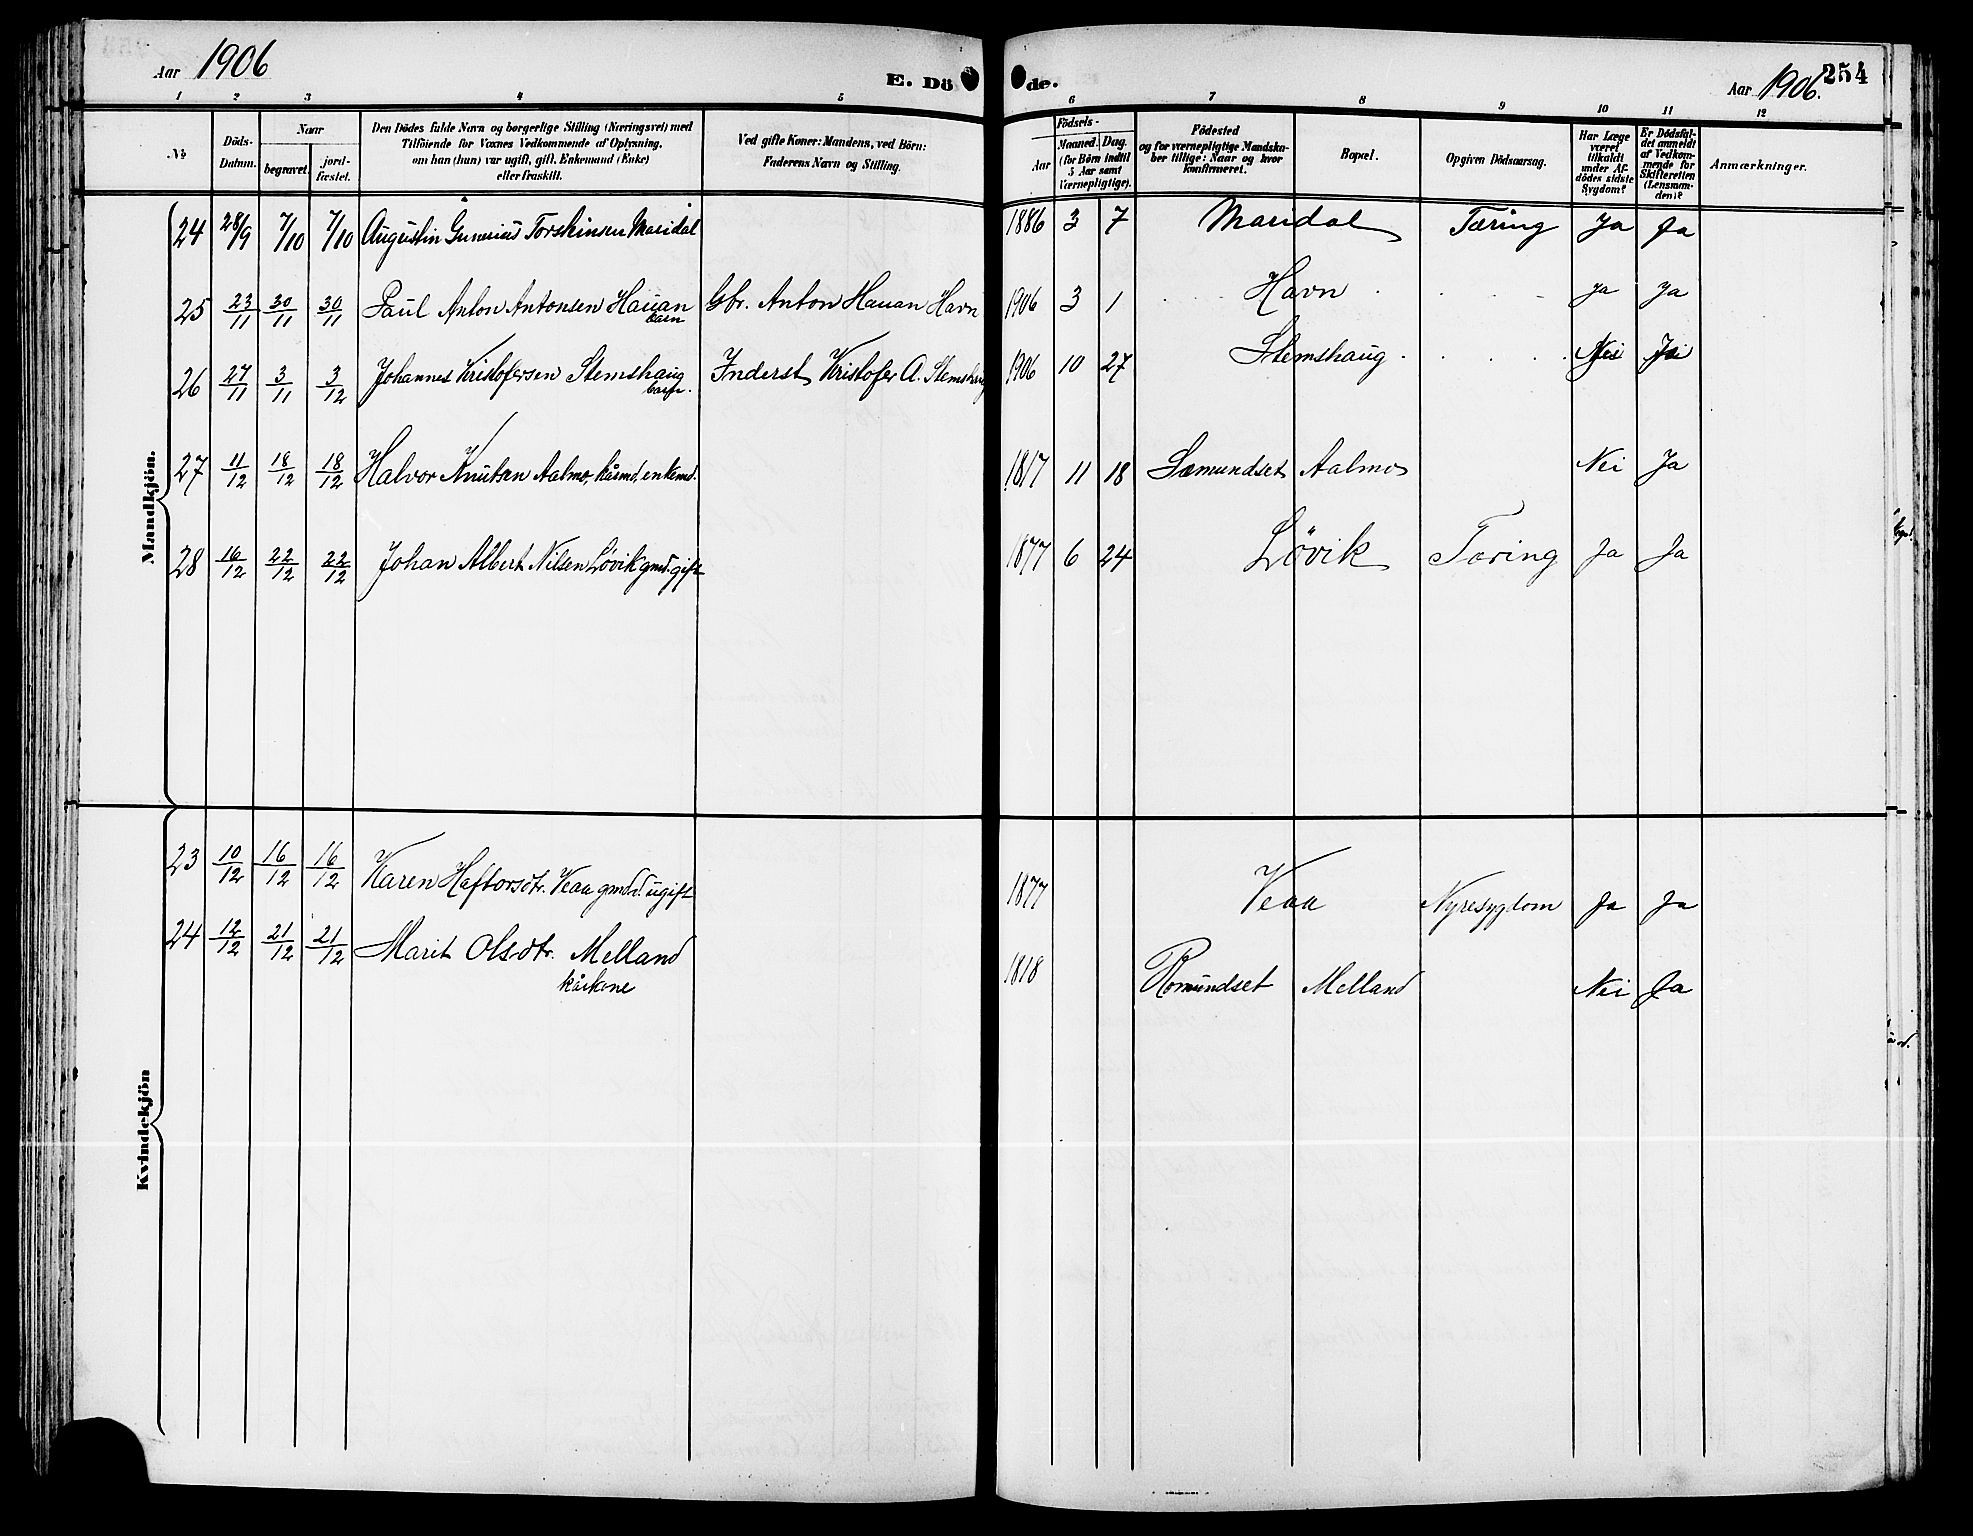 Aar 1906
E. Döde.
Aar 1906.
254
1 2 3 4 5 6 7 8 9 10 11 12
No
Döds-Datum.
Naar
begravet.
jordfæstet.
Den Dödes fulde Navn og borgerlige Stilling (Næringsvei) med
Tilföiende for Voxnes Vedkommende af Oplysning,
om han (hun) var ugift, gift, Enkemand (Enke)
eller fraskilt.
Ved gifte Koner: Mandens, ved Börn:
Faderens Navn og Stilling.
Födsels-
Aar
Maaned. Dag.
(for Börn indtil
5 Aar samt
Værnepligtige).
Födested
og for værnepligtige Mandska-
ber tillige: Naar og hvor
konfirmeret.
Bopæl.
Opgiven Dödsaarsag.
Har Læge
været
tilkaldt
under Af-
dödes sidste
Sygdom?
Er Dödsfal-
det anmeldt
af Vedkom-
mende for
Skifteretten
(Lensman-
den)?
Anmærkninger.
Mandkjön.
24 28/9 7/10 7/10 Augustin Gunerius Torstensen Maridal 1886 3 7 Maridal Tæring Ja Ja
25 23/11 30/11 30/11 Paul Anton Antonsen Hauan Gbr. Anton Hauan Havn 1906 3 1 Havn Ja Ja
barn
26 27/11 3/11 3/12 Johannes Kristofersen Stemshaug Inderst Kristofer A. Stemshaug 1906 10 27 Stemshaug Nei Ja
barn.
27 11/12 18/12 18/12 Halvor Knutsen Aalmo, kårmd, enkemd. 1817 11 18 Sæmundset Aalmo Nei Ja
28 16/12 22/12 22/12 Johan Albert Nilsen Lövik gmd. gift 1877 6 24 Lövik Tæring Ja Ja
Kvindekjön
23 10/12 16/12 16/12 Karen Haftorsdtr. Veaa gmdd. ugift 1877 Veaa Nyresygdom Ja Ja
24 12/12 21/12 21/12 Marit Olsdtr. Melland 1818 Romundset Melland Nei Ja
kårkone